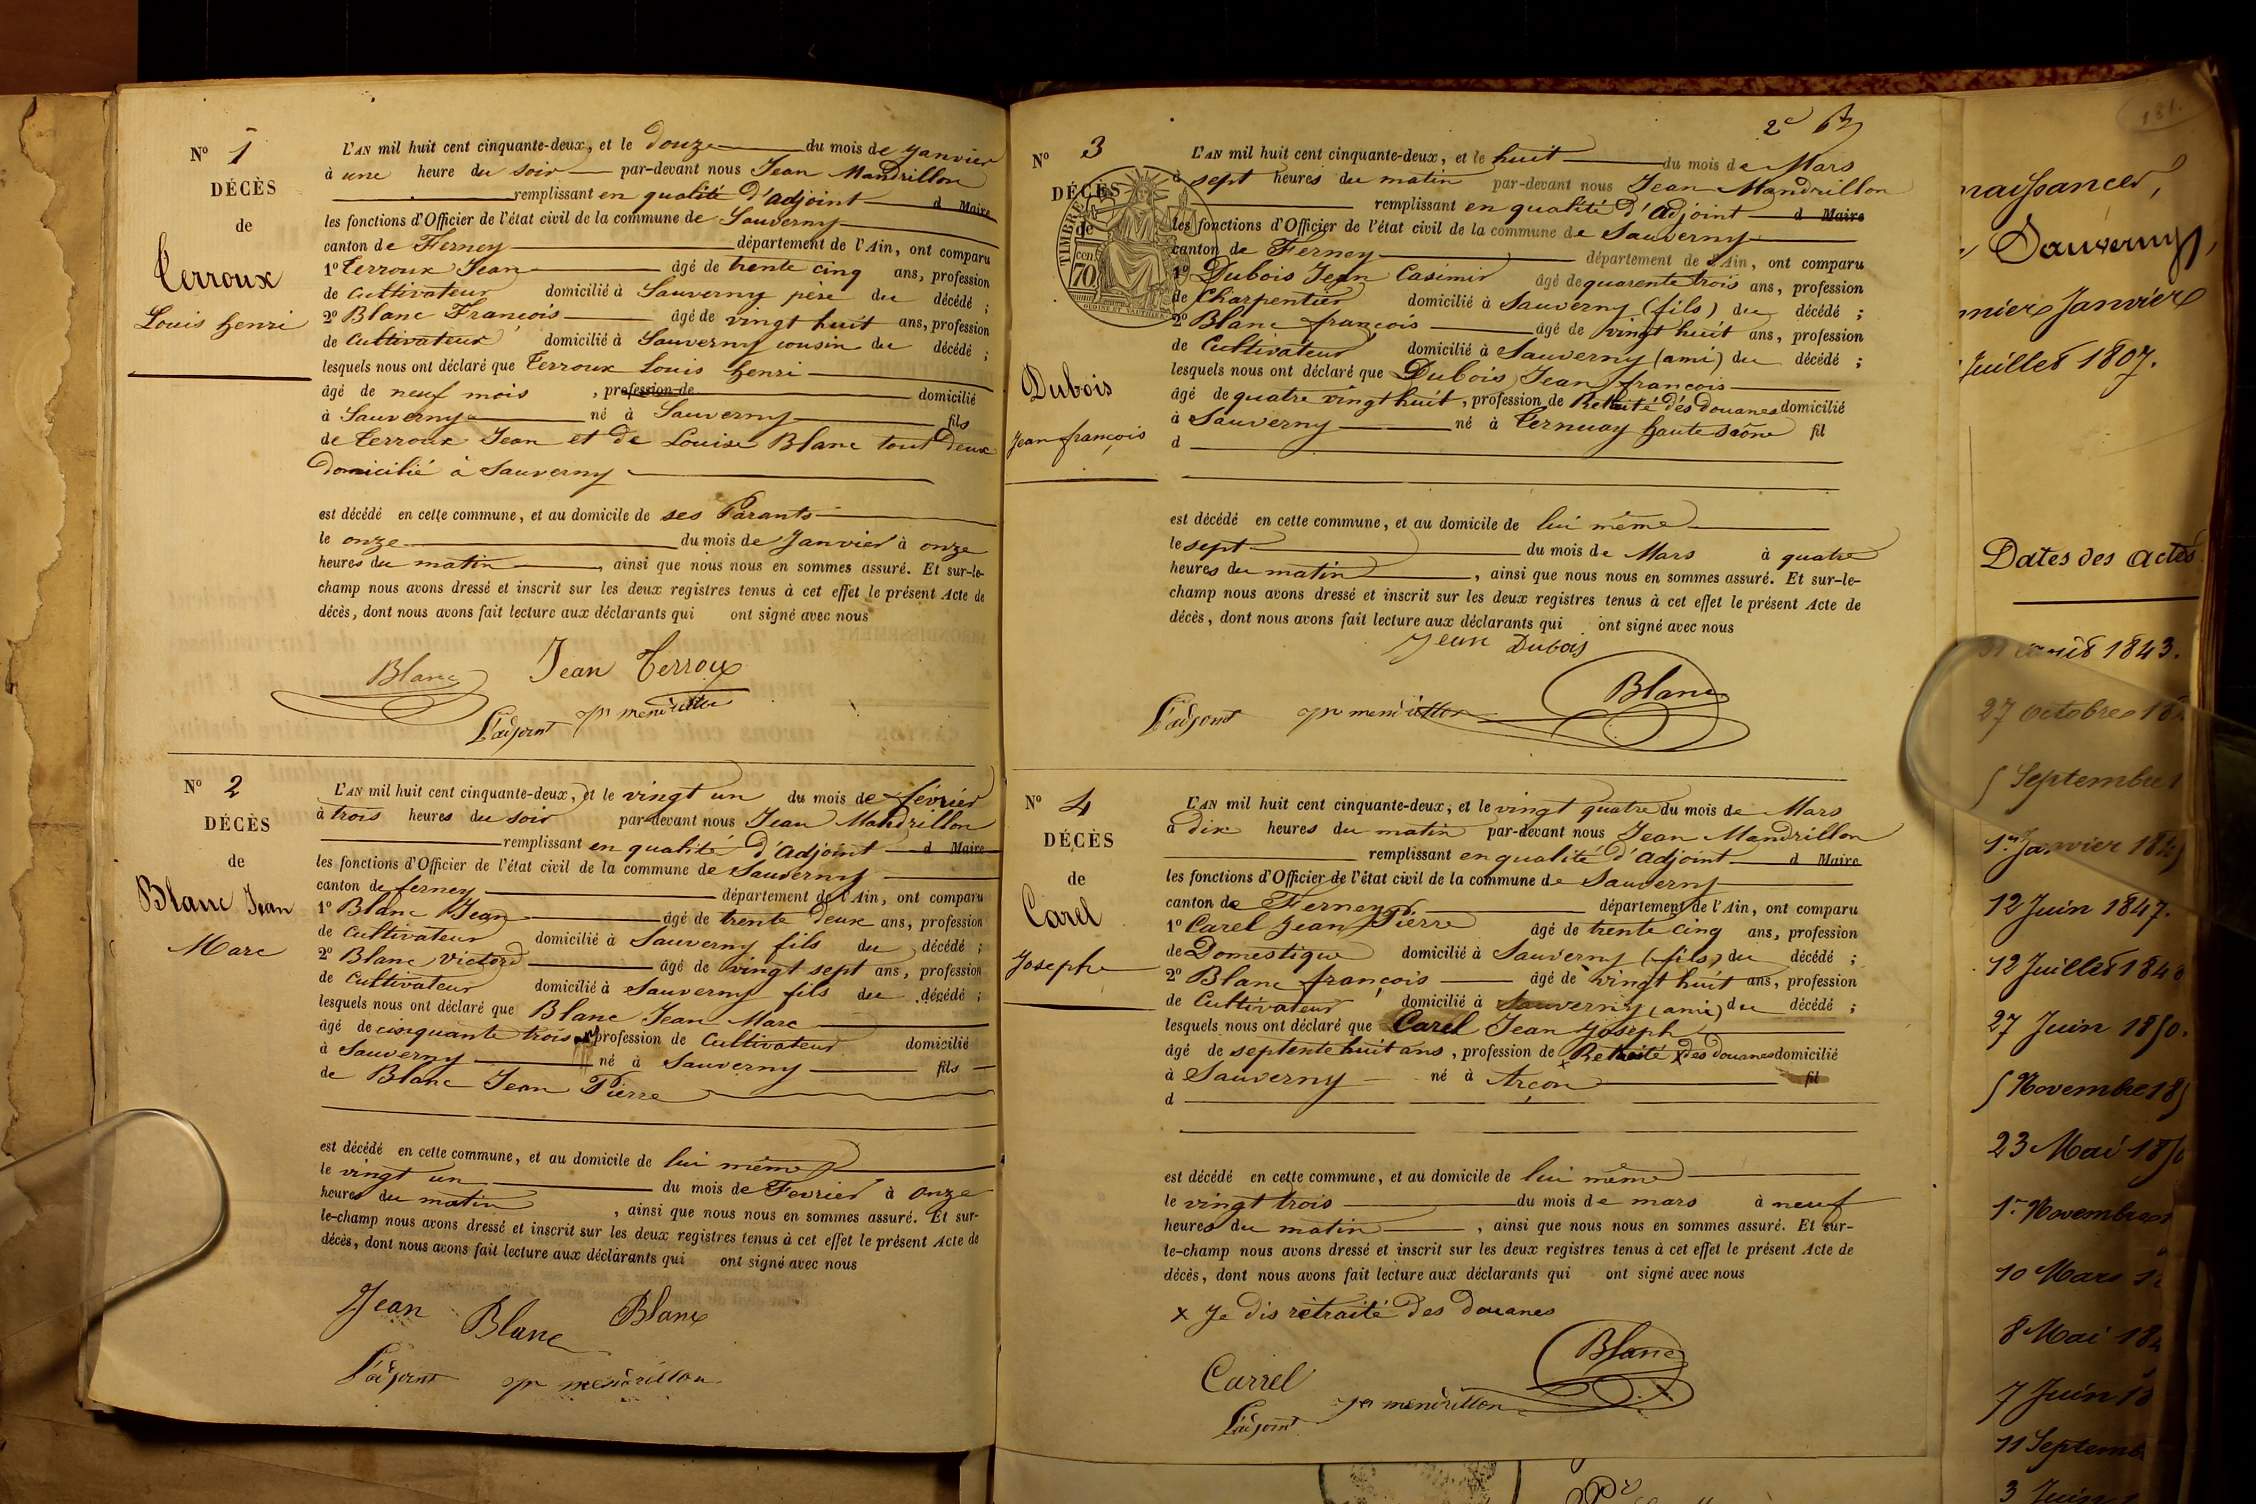 N° 1
DÉCÈS
de
Terroux
Louis henri
L'AN mil huit cent cinquante-deux, et le douze du mois de Janvier
à une heure du soir par-devant nous Jean Mandrillon
remplissant en qualité d'adjoint d Maire
les fonctions d'Officier de l'état civil de la commune de Sauverny
canton de Ferney département de l'Ain, ont comparu
1° Terroux Jean âgé de trente cinq ans, profession
de Cultivateur domicilié à Sauverny père du décédé ;
2° Blanc François âgé de vingt huit ans, profession
de Cultivateur domicilié à Sauverny cousin du décédé ;
lesquels nous ont déclaré que Terroux Louis henri
âgé de neuf mois , profession de domicilié
à Sauverny né à Sauverny fils
de Terroux Jean et de Louise Blanc tout deux
Domicilié à Sauverny
est décédé en cette commune, et au domicile de ses Parants
le onze du mois de Janvier à onze
heures du matin , ainsi que nous nous en sommes assuré. Et sur-le-
champ nous avons dressé et inscrit sur les deux registres tenus à cet effet le présent Acte de
décès, dont nous avons fait lecture aux déclarants qui ont signé avec nous
Blanc Jean Terroux
L'adjoint
N° 2
DÉCÈS
de
Blanc Jean
Marc
L'AN mil huit cent cinquante-deux, et le vingt un du mois de février
à trois heures du soir par-devant nous Jean Mandrillon
remplissant en qualité d'adjoint d Maire
les fonctions d'Officier de l'état civil de la commune de Sauverny
canton de ferney département de l'Ain, ont comparu
1° Blanc Jean âgé de trente deux ans, profession
de Cultivateur domicilié à Sauverny fils du décédé ;
2° Blanc Victord âgé de vingt sept ans, profession
de Cultivateur domicilié à Sauverny fils du décédé ;
lesquels nous ont déclaré que Blanc Jean Marc
âgé de cinquante trois profession de Cultivateur domicilié
à Sauverny né à Sauverny fils
de Blanc Jean Pierre
est décédé en cette commune, et au domicile de lui même
le vingt un du mois de Fevrier à onze
heures du matin , ainsi que nous nous en sommes assuré. Et sur-
le-champ nous avons dressé et inscrit sur les deux registres tenus à cet effet le présent Acte de
décès, dont nous avons fait lecture aux déclarants qui ont signé avec nous
Jean Blanc Blanc
L'adjoint
2e
N° 3
DÉCÈS
de
TIMBRE
70 cen
Dubois
Jean françois
L'AN mil huit cent cinquante-deux, et le huit du mois de Mars
à sept heures du matin par-devant nous Jean Mandrillon
remplissant en qualité d'adjoint d Maire
les fonctions d'Officier de l'état civil de la commune de Sauverny
canton de Ferney département de l'Ain, ont comparu
1° Dubois Jean Casimir âgé de quarente trois ans, profession
de Charpentier domicilié à Sauverny (fils) du décédé ;
2° Blanc françois âgé de vingt huit ans, profession
de Cultivateur domicilié à Sauverny (ami) du décédé ;
lesquels nous ont déclaré que Dubois Jean françois
âgé de quatre vingt huit , profession de Retraité des douanes domicilié
à Sauverny né à Ternuay haute Saône fil
d
est décédé en cette commune, et au domicile de lui même
le sept du mois de Mars à quatre
heures du matin , ainsi que nous nous en sommes assuré. Et sur-le-
champ nous avons dressé et inscrit sur les deux registres tenus à cet effet le présent Acte de
décès, dont nous avons fait lecture aux déclarants qui ont signé avec nous
Jean Dubois
Blanc
L'adjoint
N° 4
DÉCÈS
de
Carel
Josephe
L'AN mil huit cent cinquante-deux, et le vingt quatre du mois de Mars
à dix heures du matin par-devant nous Jean Mandrillon
remplissant en qualité d'adjoint d Maire
les fonctions d'Officier de l'état civil de la commune de Sauverny
canton de Ferney département de l'Ain, ont comparu
1° Carel Jean Pierre âgé de trente cinq ans, profession
de Domestique domicilié à Sauverny (fils) du décédé ;
2° Blanc françois âgé de vingt huit ans, profession
de Cultivateur domicilié à Sauverny (ami) du décédé ;
lesquels nous ont déclaré que Carel Jean Joseph
âgé de septente huit ans , profession de Retraité x des douanes domicilié
à Sauverny né à Arçon fil
d
est décédé en cette commune, et au domicile de lui même
le vingt trois du mois de mars à neuf
heures du matin , ainsi que nous nous en sommes assuré. Et sur-
le-champ nous avons dressé et inscrit sur les deux registres tenus à cet effet le présent Acte de
décès, dont nous avons fait lecture aux déclarants qui ont signé avec nous
x Je dis retraité des douanes
Blanc
Carrel
L'adjoint
181.
naissances,
Sauverny,
Janvier
Juillet 1807.
Dates des actes
1843.
27 octobre 18
5 Septembre 1
1er Janvier 184
12 Juin 1847.
12 Juillet 184
27 Juin 1850.
5 Novembre 185
23 Mai 185
1er Novembre
10 Mars 1
8 Mai 18
7 Juin 1
11 Septemb
3 Juin